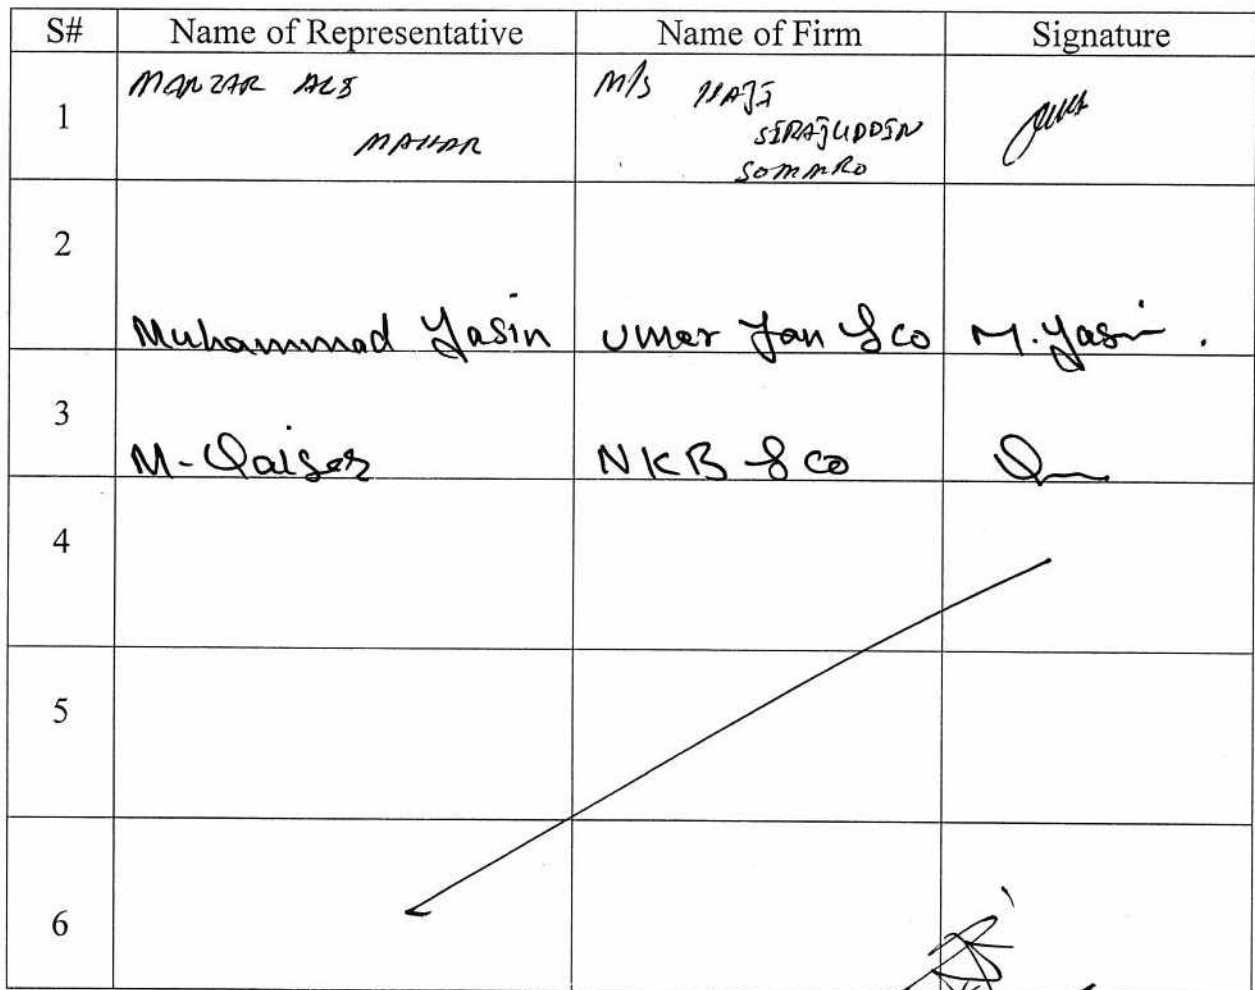 S# Name of Representative Name of Firm Signature
1 MANZAR ALI M/S HAJI
MAHAR SIRAJUDDIN
SOMMRO
2
Muhammad Yasin Umer Jan & co M. Yasin .
3
M- Qaiser NKB & co
4
5
6